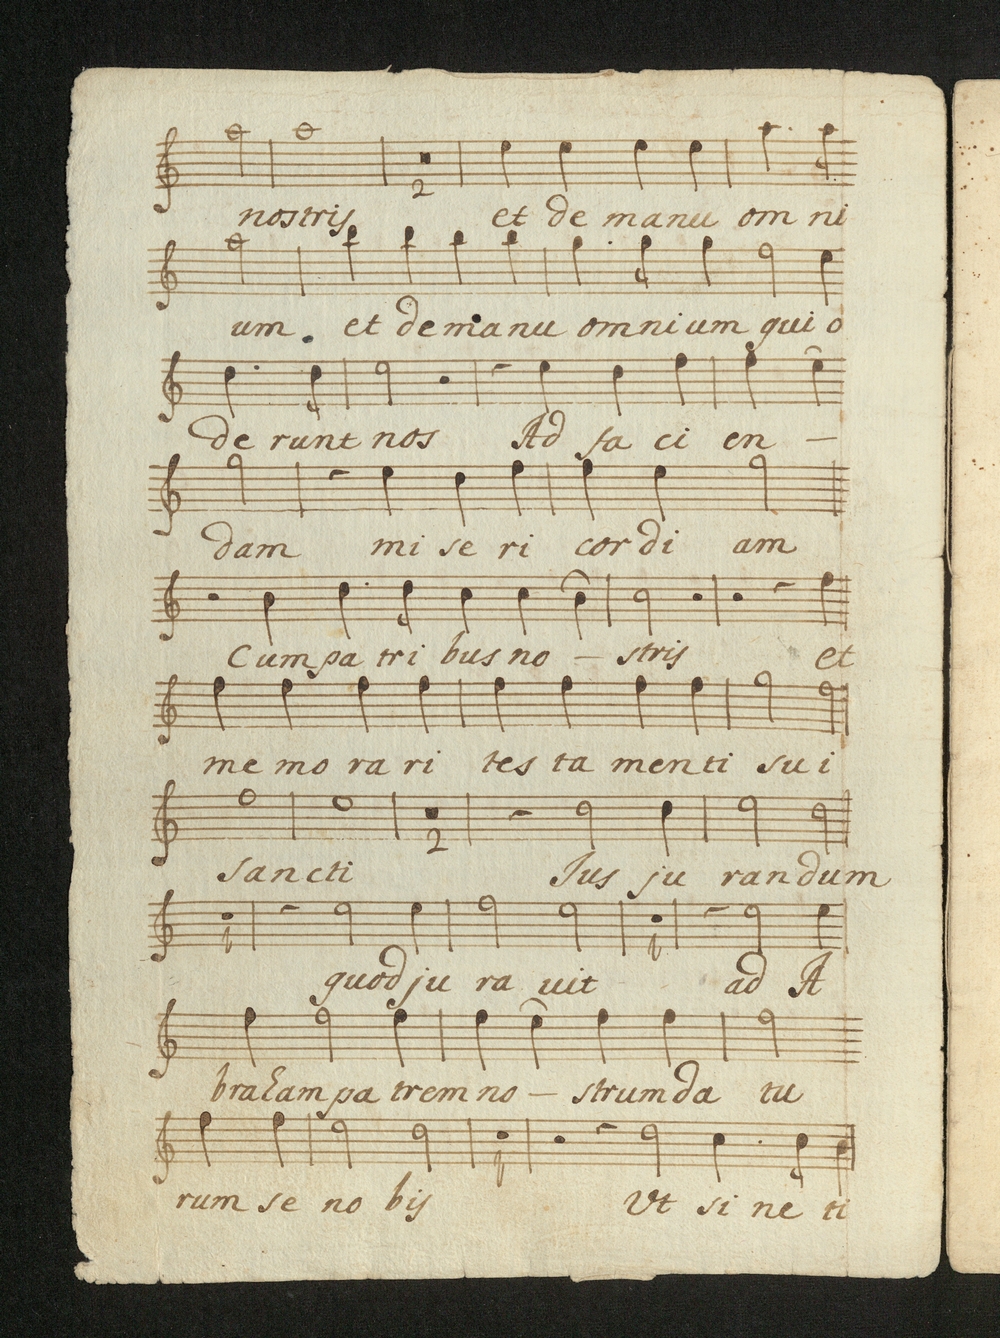 nostris et de manu om ni
um. et de manu omnium qui o
de runt nos Ad fa ci en —
dam mi se ri cor di am
Cum pa tri bus no — stris et
me mo ra ri tes ta menti su i
sancti Jus ju randum
quod ju ra uit ad A
braham pa trem no — strum da tu
rum se no bis Vt si ne ti